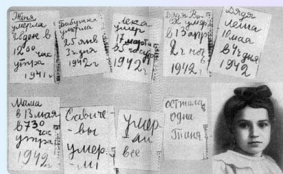 Женя
умерла
28 дек в
12.00 час
утра
1941 г
Бабушка
умерла
25 янв
1942 г
Лека
умер
17 марта
1942 г
Дядя Вася
умер
в 13 апр
2 ч ноч
1942 г
Дядя
Леша
10 мая
в 4 ч дня
1942 г
Мама
в 13 мая
в 7.30
час
утра
1942
Савиче-
вы
умер-
ли
Умер
ли
все
осталась
одна
Таня